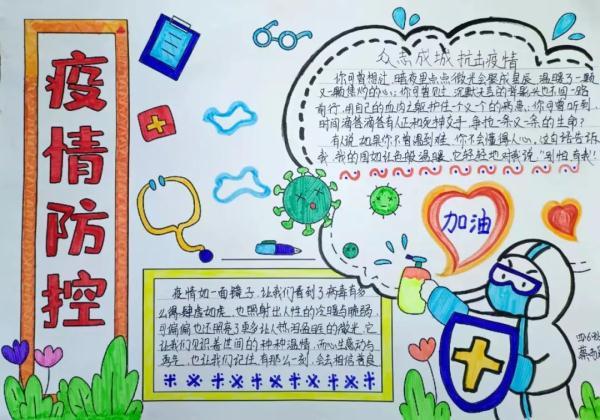 疫情防控
众志成城 抗击疫情
你可曾想过,暗夜里点点微光会聚成星辰,温暖了一颗
又一颗焦灼的心;你可曾见过,沉默无言的脊
有行,用自己的血肉之躯护住一个又一个的病患;你可曾听到,
时间滴答滴答有人正和死神交手,争抢一条又一条的生命?
有人说,如果你不曾遇到难,你不会懂得人心,这句话告诉
我,我的国如让色般温暖,它轻轻地对我说:"别怕,有我!
加油
疫情如一面镜子,让我们看到了病毒有多
么得肆虐如虎,也照射出人性的冷暖与脆弱,
可偏偏也照亮了更多让人热泪盈眶的微光,它
让我们见识着世间的种种温情,而心生感动与
勇气,也让我们记住,有那么一刻,会去相信善良
四6班